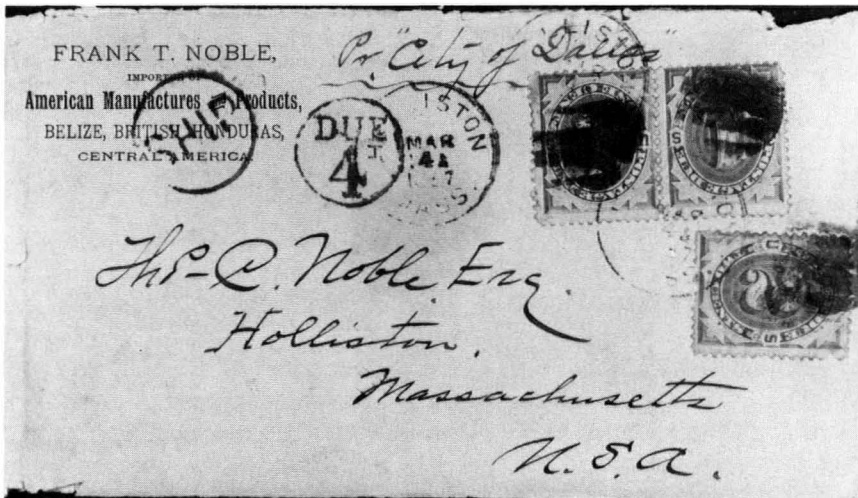 FRANK T. NOBLE,
IMPORTER OF
American Manufactures Products,
BELIZE, BRITISH HONDURAS,
CENTRAL AMERICA.
SHIP
DUE
4
Pr. "City of Dallas"
ISTON
MAR
MASS.
2
Thos. C. Noble Esq.
Holliston.
Massachusetts
U.S.A.